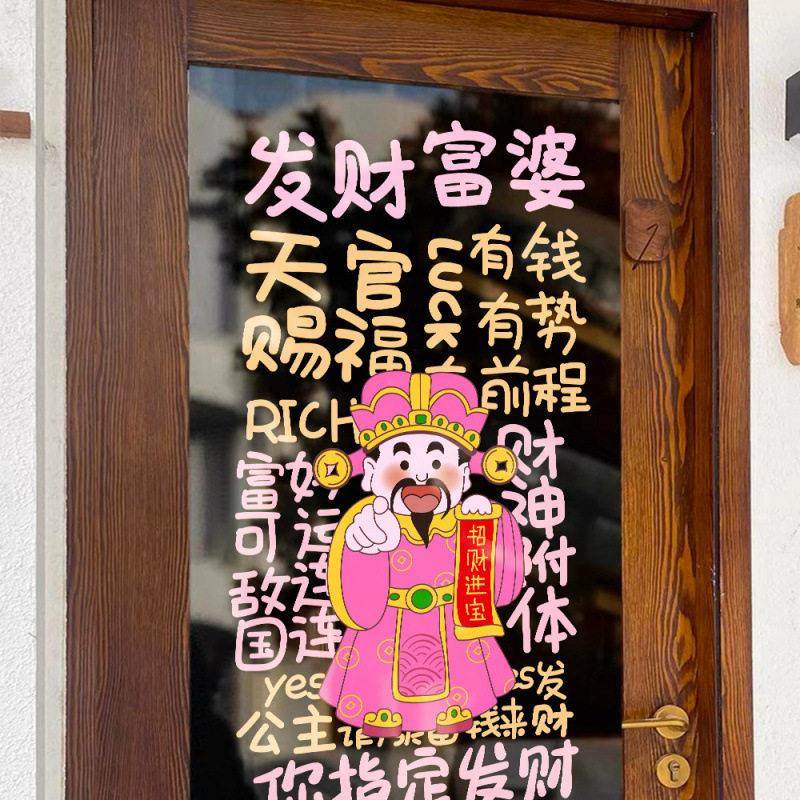 发财富婆
天官
赐福
LUCK
有钱
有势
前程
RICH
富可敌国
好运连连
财神附体
招财进宝
yes
发
公主
钱来财
你指定发财